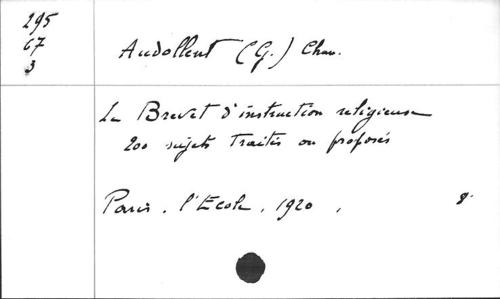 295
67
3
Audollent (G.) Chan.
Le Brevet d'instruction religieuse
200 sujets traités ou proposés
Paris. l'Ecole, 1920, 8°